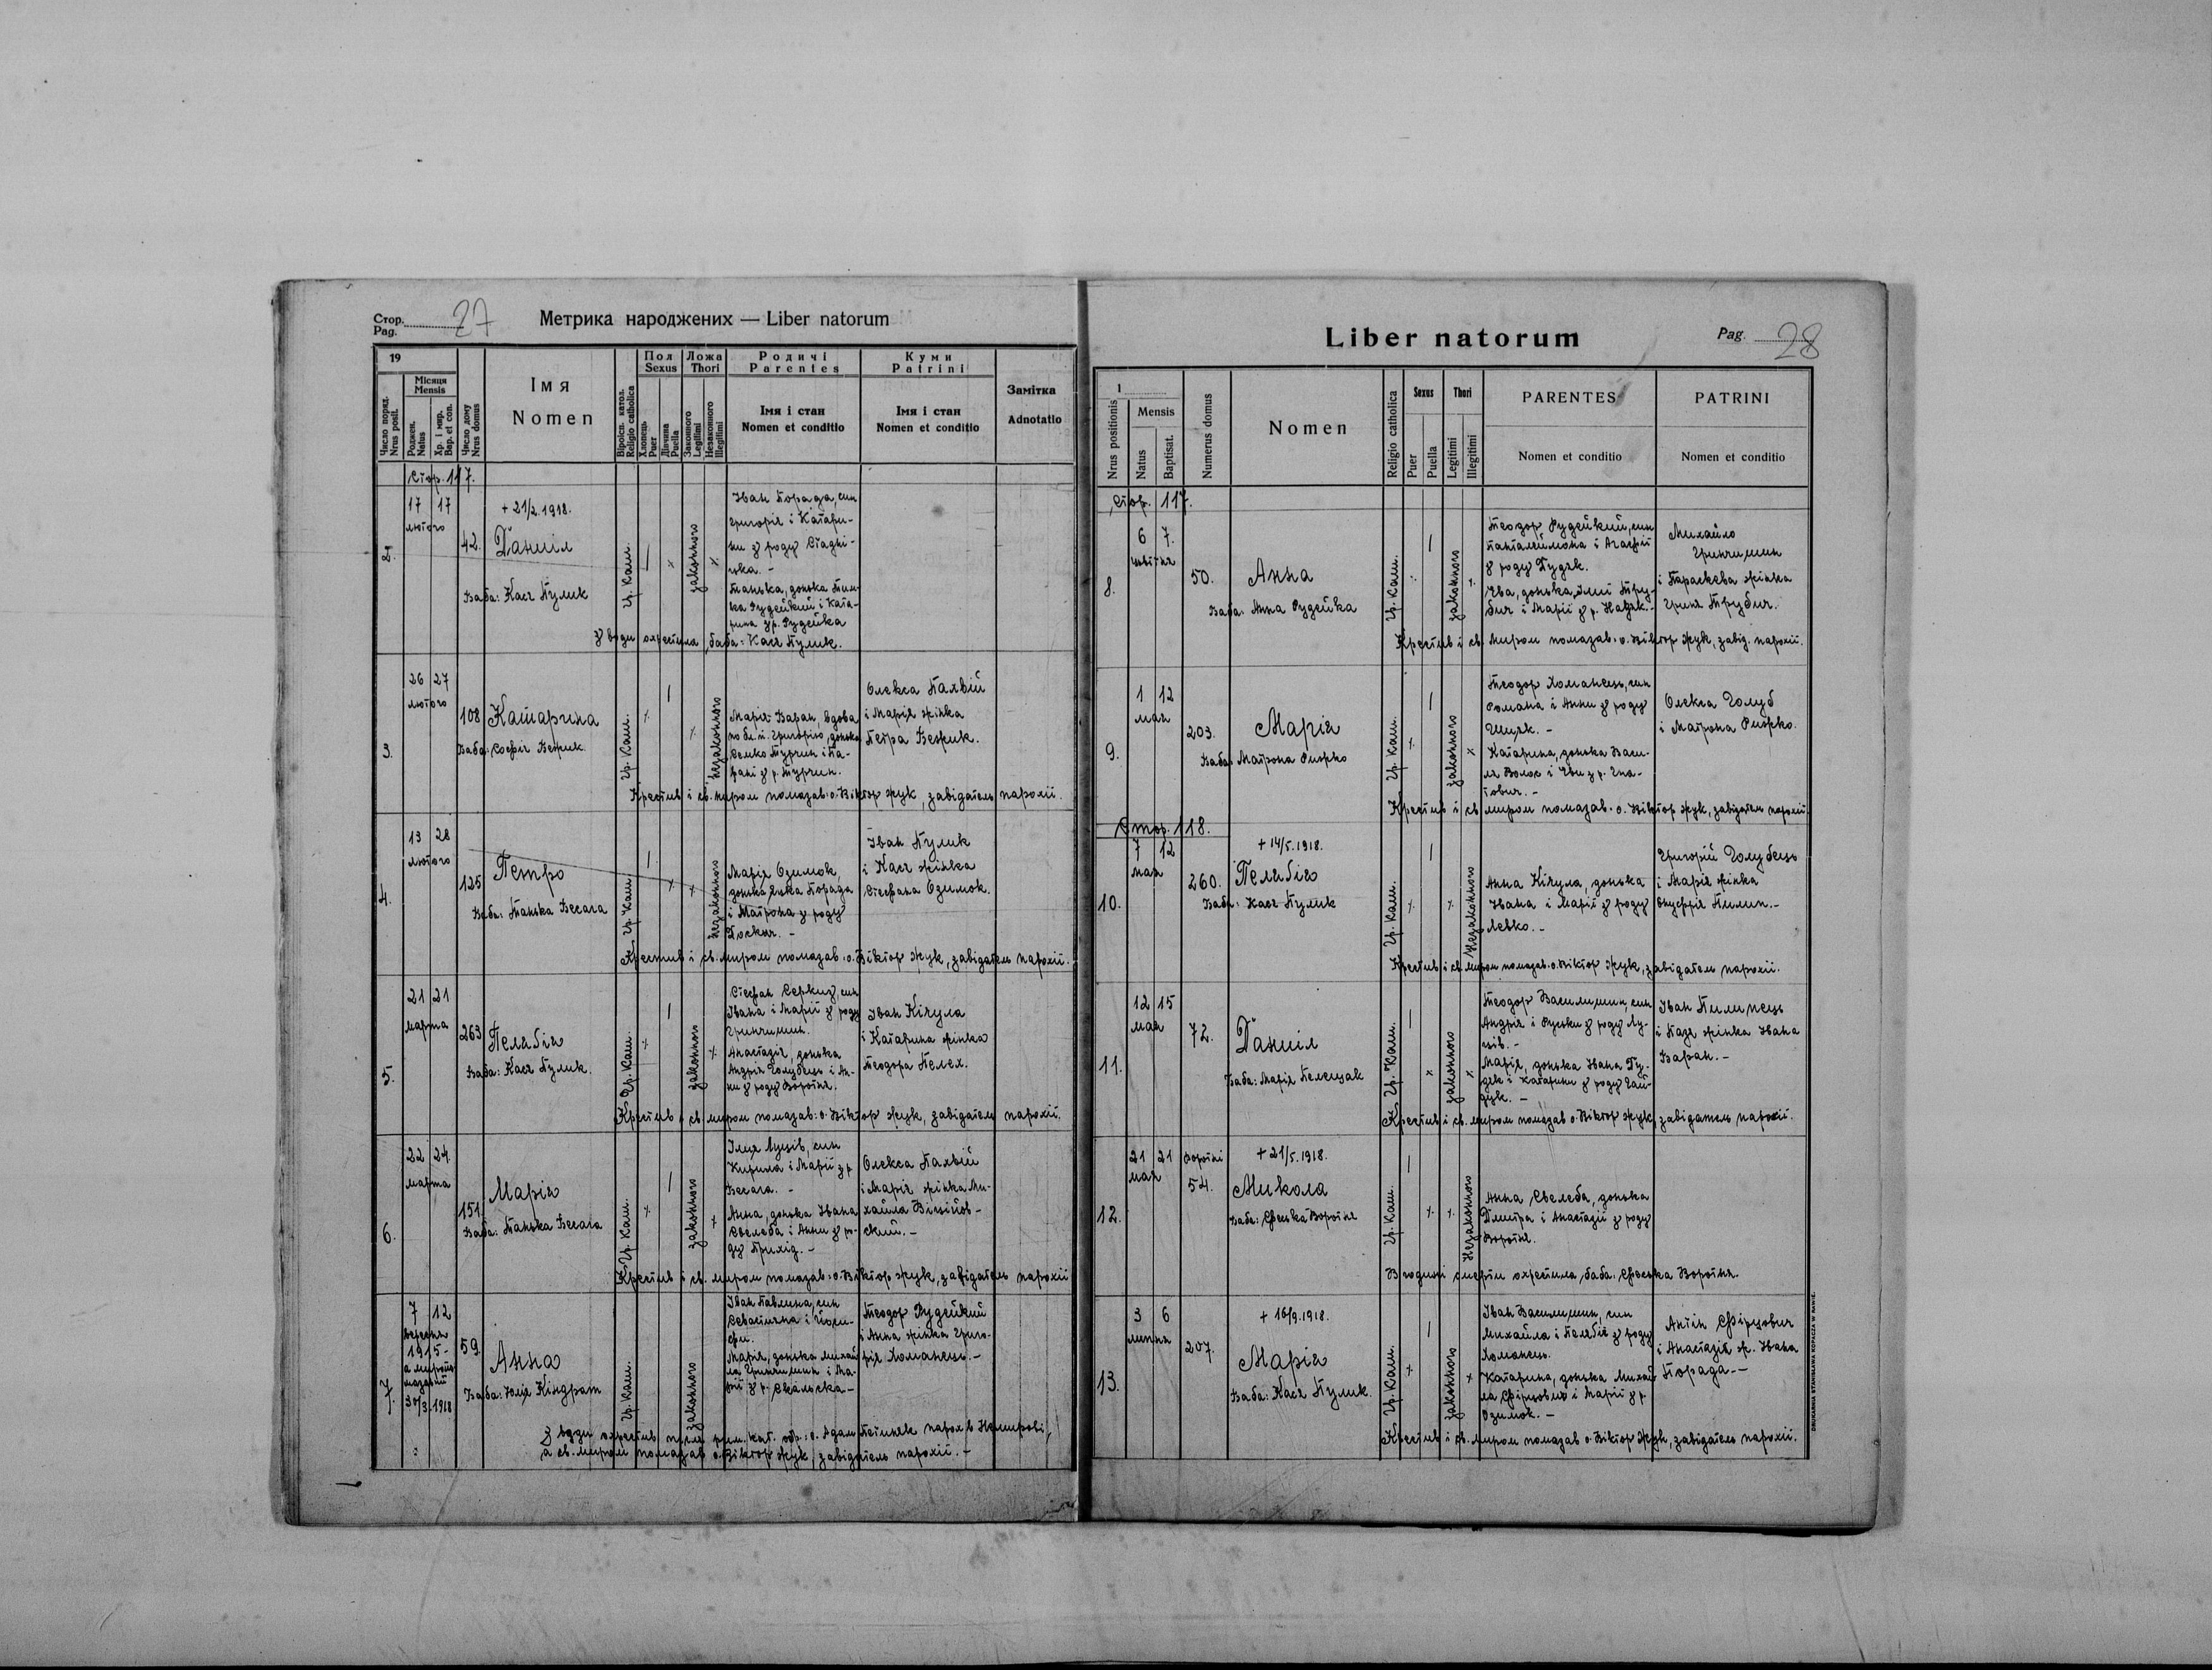 Стор.
Pag. 27
Метрика народжених — Liber natorum
19
Місяця
Mensis
Число поряд.
Nrus posit.
Роджен.
Natus
Хр. і мир.
Bap. et con.
Число дому
Nrus domus
Імя
Nomen
Віроісп. катол.
Religio catholica
Пол
Sexus
Хлопець
Puer
Дівчина
Puella
Ложа
Thori
Законного
Legitimi
Незаконного
Illegitimi
Родичі
Parentes
Імя і стан
Nomen et conditio
Куми
Patrini
Імя і стан
Nomen et conditio
Замітка
Adnotatio
Стор. 117.
2.
17 17
лютого
42.
+ 21/2.1918.
Даниіл
Баба: Кася Кулик
Гр. Кат.
законного
Іван Порада, син
Григорія і Катари-
ни з роду Стадні-
Танька, донька
рина з р. Рудейка
з води охрестила баба: Кася Кулик.
3.
26 27
лютого
108
Катарина
Баба: Софія
Гр. Кат.
незаконного
Марія Баран, вдова
по бл. п. Григорію, донька
Семко Турчин і Па-
з р. Турчин.
Олекса Палвій
і Марія жінка
Петра
Крестив і св. миром помазав: о. Віктор Жук, завідатель парохії.
4.
13 28
лютого
125
Петро
Баба: Танька Бесага
Гр. Кат.
незаконного
Марія Озимок,
донька Яцка Порада
і Матрона з роду
Іван Кулик
і Кася жінка
Стефана Озимок.
Крестив і св. миром помазав: о. Віктор Жук, завідатель парохії.
5.
21 21
марта
263
Пелагія
Баба: Кася Кулик.
Гр. Кат.
законного
Стефан Серкиз, син
Івана і Марії з роду
Гринчишин.
Анастазія, донька
Андрія Голубець і Ан-
ни з роду Воротня.
Іван Кічула
і Катарина жінка
Теодора Пелех.
Крестив і св. миром помазав: о. Віктор Жук, завідатель парохії.
6.
22 24
марта
151
Марія
Баба: Танька Бесага
Гр. Кат.
законного
Ілия Луців, син
Кирила і Марії з р.
Бесага. -
Анна, донька Івана
Свелеба і Анни з ро-
ду Прихід. -
Олекса Палвій
і Марія жінка Ми-
хайла
Крестив і св. миром помазав: о. Віктор Жук, завідатель парохії
7.
7 12
вересня
1915 -
а миропо-
мазаний
30/3.1918
59
Анна
Баба: Юлія Кіндрат
Гр. Кат.
законного
Іван Павлина, син
Севастияна і Йози-
фи.
Марія, донька Михай-
ла Гринчишин і Ма-
рії з р.
Теодор Рудейкий
і Анна жінка Григо-
рія Хоманець. -
З води охрестив після рим. кат. обр.: о. Адам парох в Немирові,
а св. миром помазав о. Віктор Жук, завідатель парохії. -
Liber natorum
Pag. 28
1
Nrus positionis
Mensis
Natus
Baptisat.
Numerus domus
Nomen
Religio catholica
Sexus
Puer
Puella
Thori
Legitimi
Illegitimi
PARENTES
Nomen et conditio
PATRINI
Nomen et conditio
Стор. 117.
8.
6 7.
цвітня
50.
Анна
Баба: Анна Рудейка
Гр. Кат.
законного
Теодор Рудейкий, син
Панталеймона і Агафії
з роду Дудяк.
Ева, донька Ілиї Тру-
бич і Марії з р.
Михайло
Гринчишин
і Параскева жінка
Гриня Трубич.
Крестив і св. миром помазав: о. Віктор Жук, завід. парохії.
9.
1 12
мая
203.
Марія
Баба: Матрона
Гр. Кат.
законного
Теодор Хоманець, син
Романа і Анни з роду
Катарина, донька Васи-
ля Волос і Еви з р. Гна-
тович. -
Олекса Голуб
і Матрона
Крестив і св. миром помазав: о. Віктор Жук, завідатель парохії
Стор. 118.
10.
7 12
мая
260.
+ 14/5.1918.
Пелагія
Баба: Кася Кулик
Гр. Кат.
Незаконного
Анна Кічула, донька
Івана і Марії з роду
Левко. -
Григорій Голубець
і Марія жінка
Онуфрія Пилип. -
Крестив і св. миром помазав: о. Віктор Жук, завідатель парохії.
11.
12 15
мая
72.
Даниіл
Баба: Марія Пелещак
Гр. Кат.
законного
Теодор Василишин, син
Андрія і Руськи з роду Лу-
ців. -
Марія, донька Івана Гу-
дяк і Катарини з роду Гай-
дук. -
Іван Пилипець
і Пазя жінка Івана
Баран. -
Крестив і св. миром помазав о. Віктор Жук, завідатель парохії.
12.
21 21
мая
54.
+ 21/5.1918.
Микола
Баба: Феська Воротня
Гр. Кат.
Незаконного
Анна Свелеба, донька
Дмитра і Анастазії з роду
Воротня.
В годині смерти охрестила, баба: Феська Воротня.
13.
3 6
липня
207.
+ 16/9.1918.
Марія
Баба: Кася Кулик.
Гр. Кат.
законного
Іван Василишин, син
Михайла і Пелагії з роду
Хоманець.
Катарина, донька Михай-
ла Фірцович і Марії з р.
Озимок. -
Антін Фірцович
і Анастазія ж. Івана
Порада. -
Крестив і св. миром помазав о. Віктор Жук, завідатель парохії.
DRUKARNIA STANISŁAWA KOPACZA W RAWIE.